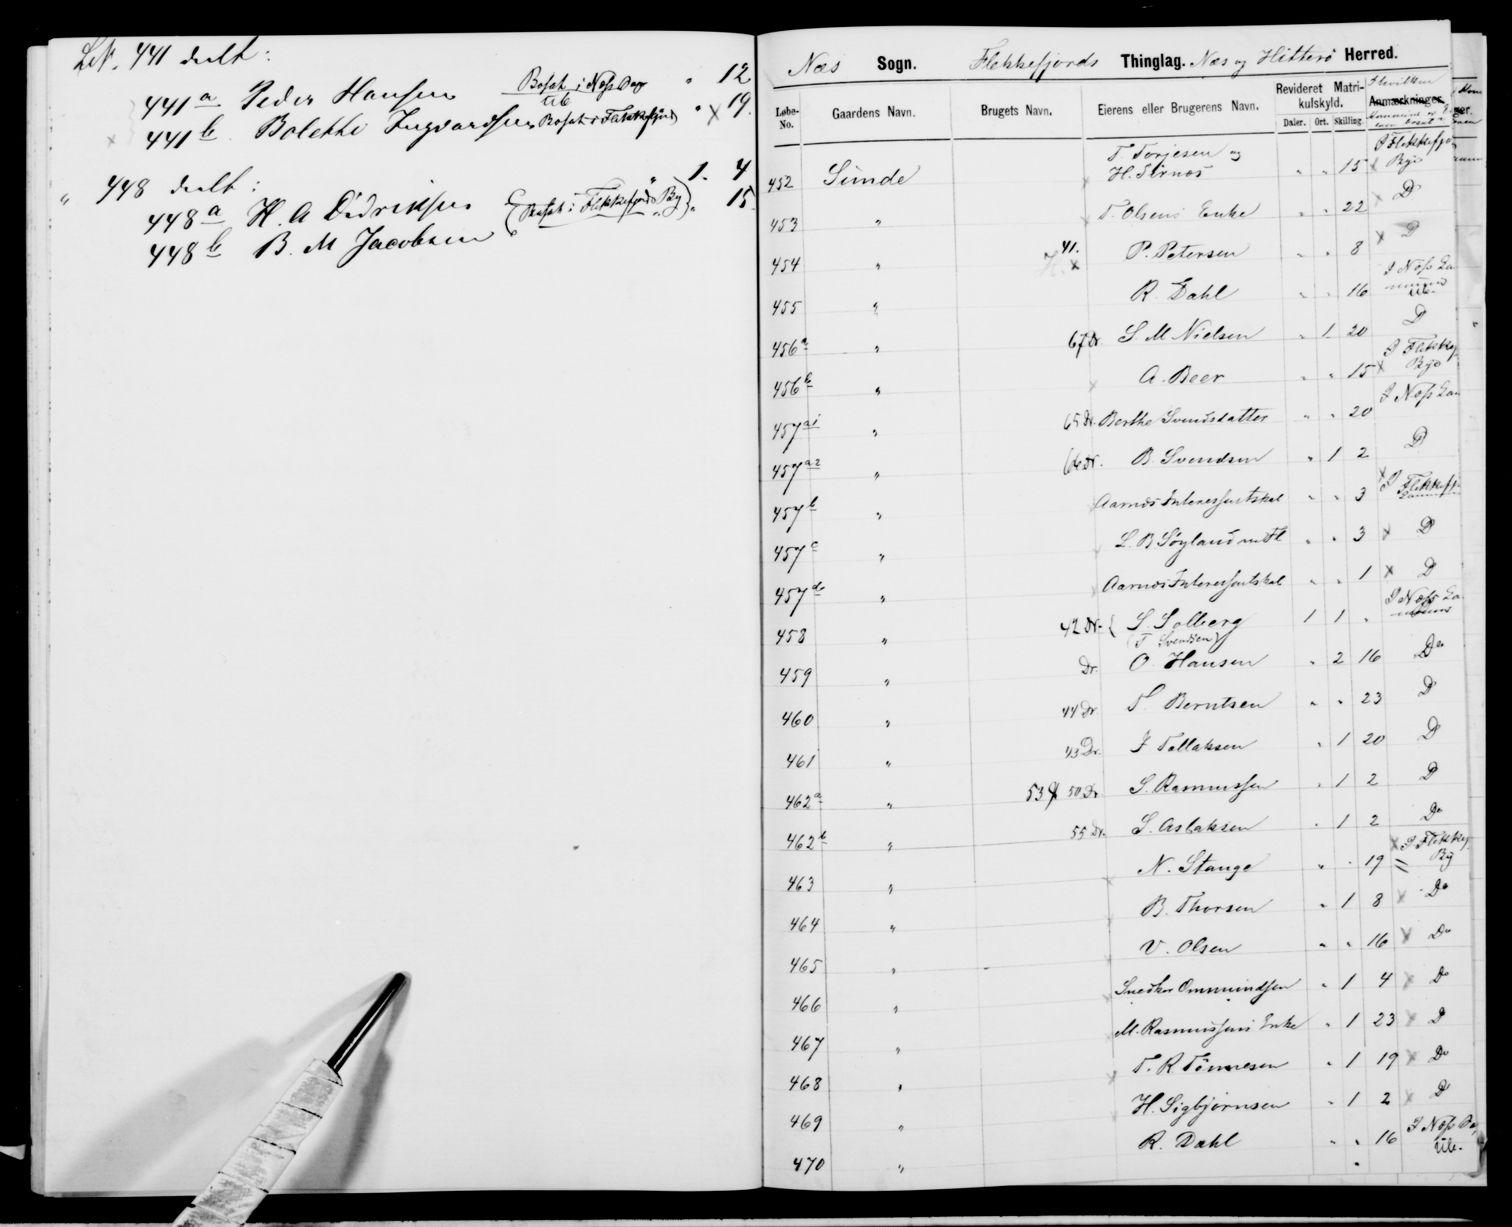 LN. 441 deelt:
441a Peder Hansen Bosat i Næs Sogn " 12
441b Bolette Ingvardsen Bosat i Flekkefjord " × 19.
" 448 deelt: " 1. 4
448a H. A Didriksen (Bosat i Flekkefjords By) " 15
448b B. M Jacobsen
Næs Sogn. Flekkefjords Thinglag. Næs og Hitterø Herred.
Løbe-No. Gaardens Navn. Brugets Navn. Eierens eller Brugerens Navn. Revideret Matrikulskyld. Daler. Ort. Skilling. Anmærkninger.
452 Sunde T. Torjesen og H. Sirnes " " 15 × I Flekkefjo By
453 " T. Olsens Enke " " 22 × D
454 " 41. × P. Petersen " " 8 × D
455 " R. Dahl " " 16 I Næs
456a " 67 Dr. S. M Nielsen " 1 20 D
456b " A. Beer " " 15 × I Flekkef By
457a1 " 65 Dr. Berthe Svendsdatter " " 20 I Næs
457a2 " 66 Dr. B. Svendsen " 1 2 D
457b " Aarnes Interessentskab " " 3 × I Flekkefj
457c " L. B Søyland m Fl " " 3 × D
457d " Aarnes Interessentskab " " 1 × D
458 " 42 Dr. { S. Solberg (T Svendsen) 1 1 " I Næs
459 " Dr. O. Hansen " 2 16 Do
460 " 44 Dr T. Berntsen " " 23 D
461 " 43 Dr. T Tallaksen " 1 20 D
462a " 53 50 Dr S. Rasmussen " 1 2 D
462b " 55 Dr. S. Aslaksen " 1 2 Do
463 " N. Stange " " 19 × I Flekkef By
464 " B. Thorsen " 1 8 × Do
465 " V. Olsen " " 16 × Do
466 " Snedker Ommundsen " 1 4 × Do
467 " M. Rasmussens Enke " 1 23 × D
468 " T. R Tønnesen " 1 19 × Do
469 " H. Sigbjørnsen " 1 2 × D
470 " R. Dahl " " 16 I Næs